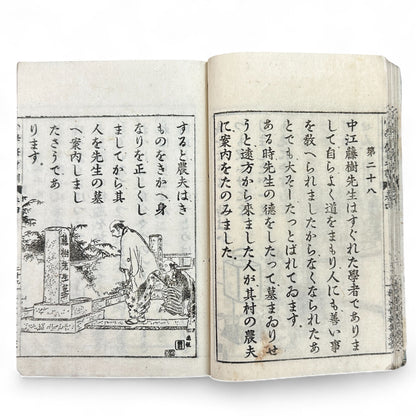 第二十八
中江藤樹先生はすぐれた學者でありま
して自らよく道をまもり人にも善い事
を敎へられましたからなくなられたあ
とでも大そーしたっとばれてゐます。
ある時先生の德をしたって墓まゐりせ
うと遠方から來ました人が其村の農夫
に案内をたのみました。
すると農夫はき
ものをきかへ身
なりを正しくし
ましてから其
人を先生の墓
へ案内しまし
たさうであ
ります。
藤樹先生墓